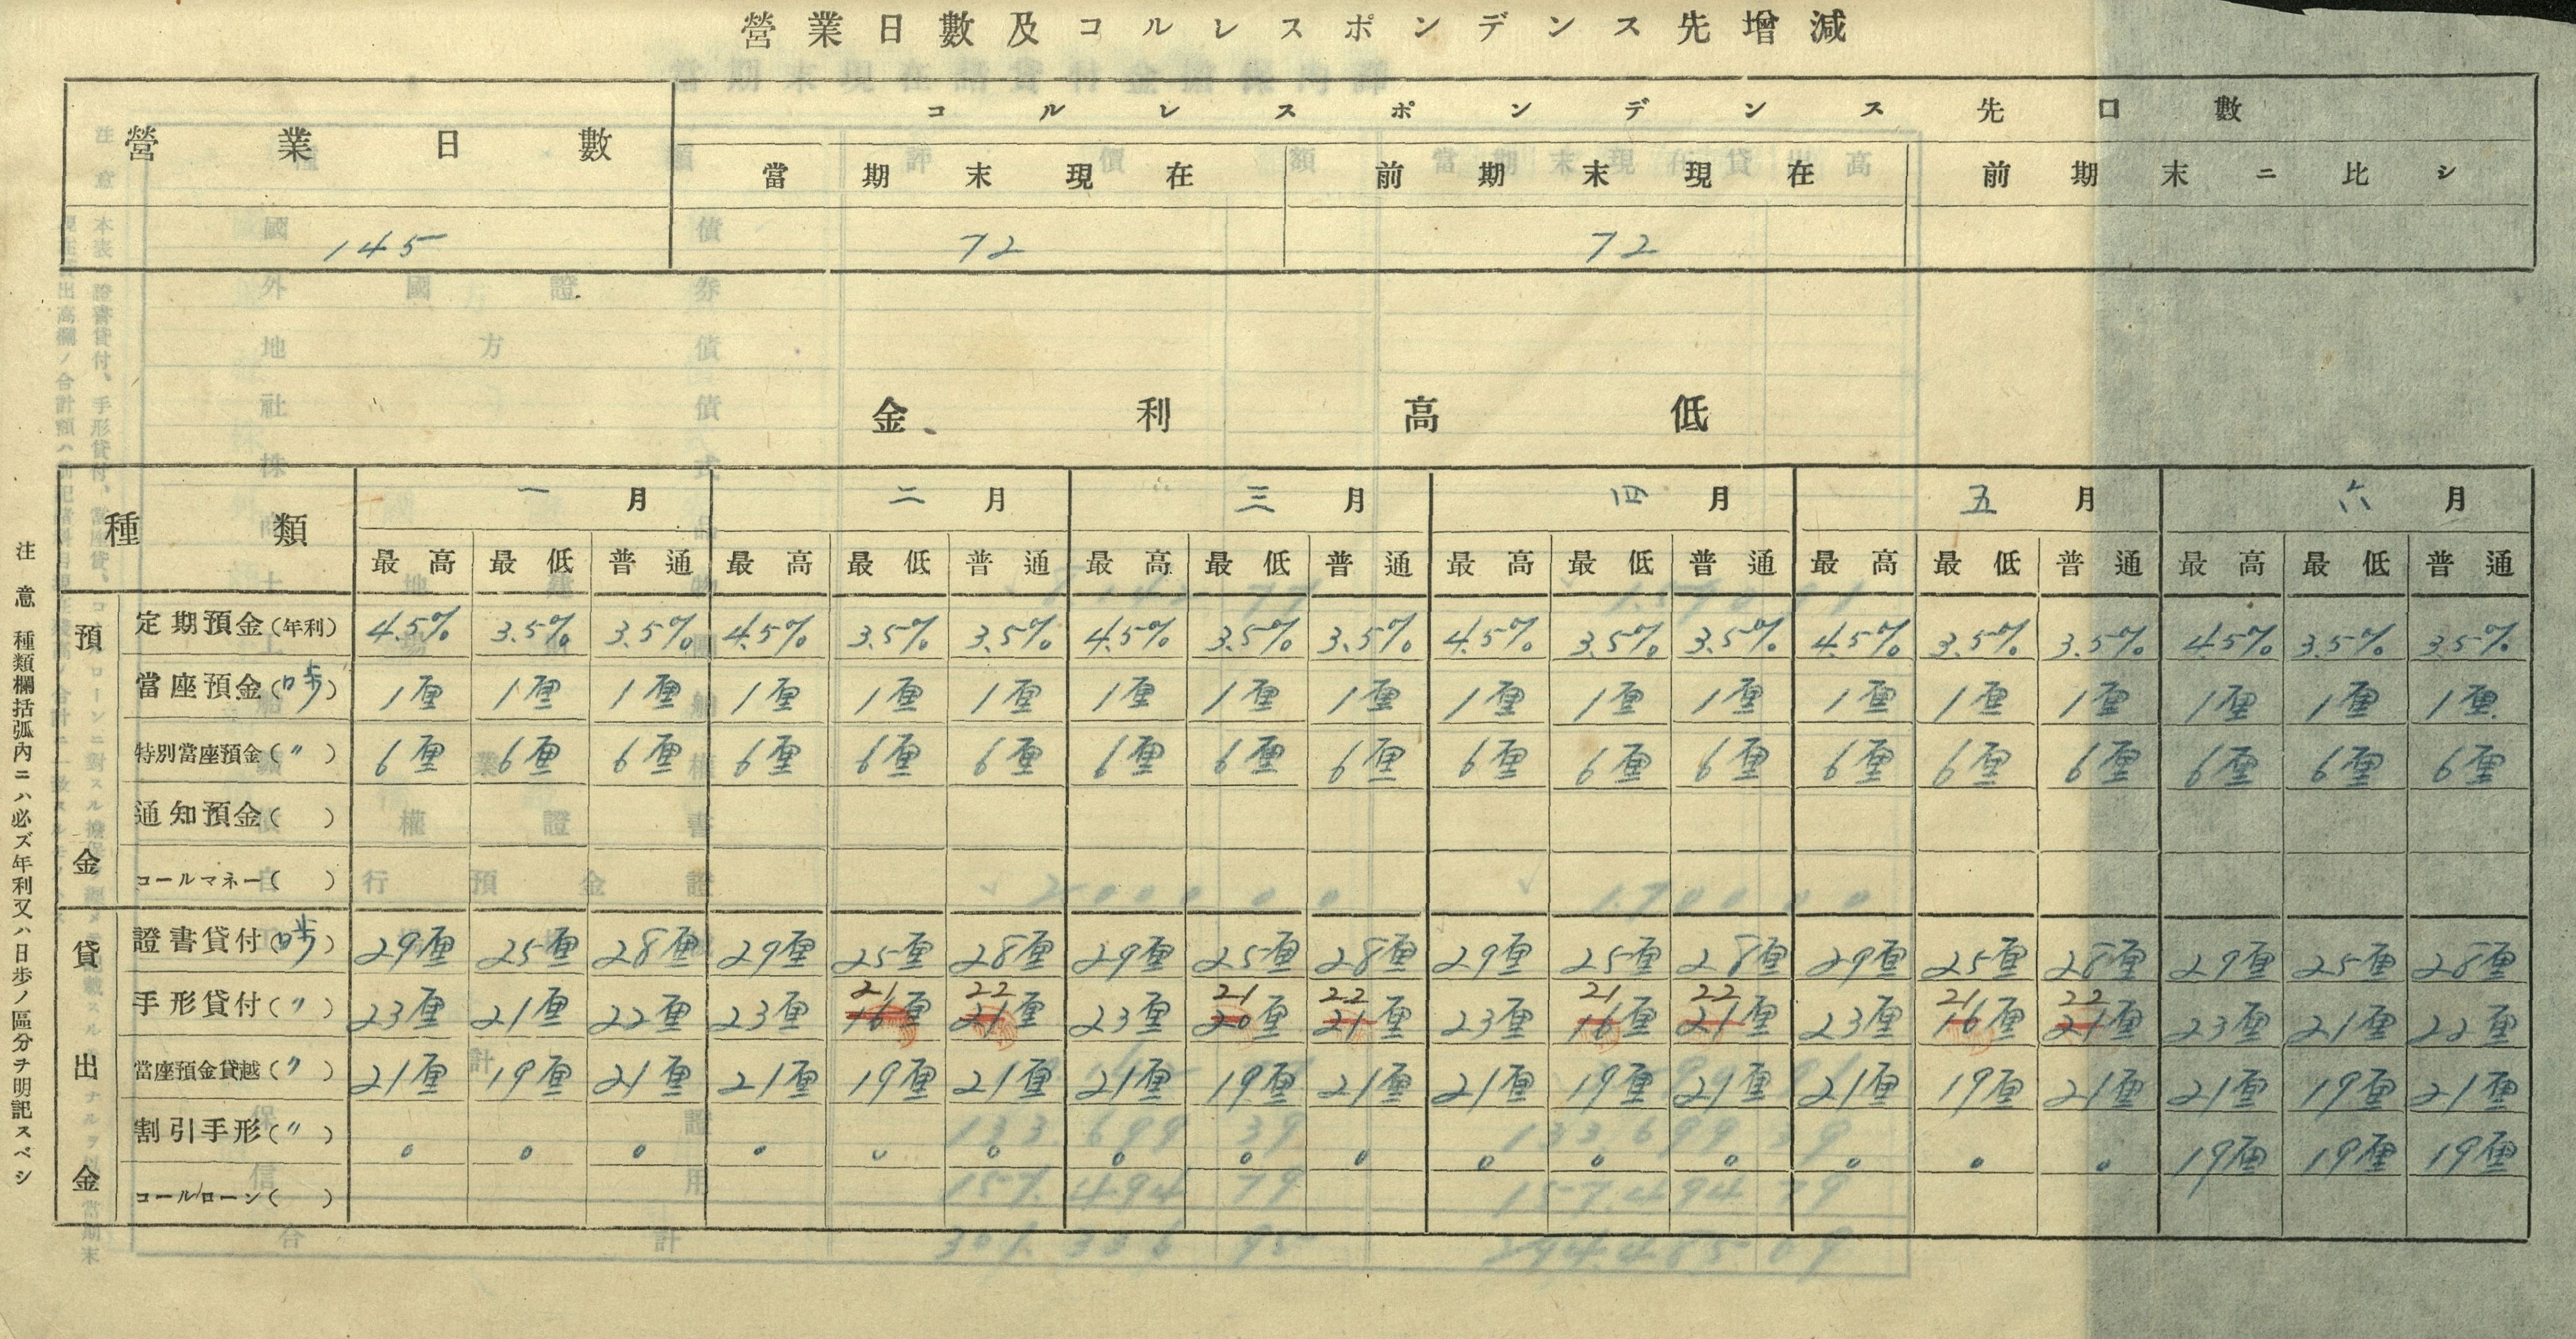 營業日數及コルレスポンデンス先增減
營業日數 コルレスポンデンス先口數
當期末現在 前期末現在 前期末ニ比シ
145 72 72
金利高低
種類 一月 二月 三月 四月 五月 六月
最高 最低 普通 最高 最低 普通 最高 最低 普通 最高 最低 普通 最高 最低 普通 最高 最低 普通
預金
定期預金(年利) 4.5% 3.5% 3.5% 4.5% 3.5% 3.5% 4.5% 3.5% 3.5% 4.5% 3.5% 3.5% 4.5% 3.5% 3.5% 4.5% 3.5% 3.5%
當座預金(日歩) 1厘 1厘 1厘 1厘 1厘 1厘 1厘 1厘 1厘 1厘 1厘 1厘 1厘 1厘 1厘 1厘 1厘 1厘
特別當座預金(〃) 6厘 6厘 6厘 6厘 6厘 6厘 6厘 6厘 6厘 6厘 6厘 6厘 6厘 6厘 6厘 6厘 6厘 6厘
通知預金( )
コールマネー( )
貸出金
證書貸付(日歩) 29厘 25厘 28厘 29厘 25厘 28厘 29厘 25厘 28厘 29厘 25厘 28厘 29厘 25厘 28厘 29厘 25厘 28厘
21 22 21 22 21 22 21 22
手形貸付(〃) 23厘 21厘 22厘 23厘 16厘 21厘 23厘 20厘 21厘 23厘 16厘 21厘 23厘 16厘 21厘 23厘 21厘 22厘
當座預金貸越(〃) 21厘 19厘 21厘 21厘 19厘 21厘 21厘 19厘 21厘 21厘 19厘 21厘 21厘 19厘 21厘 21厘 19厘 21厘
割引手形(〃) 0 0 0 0 0 0 0 0 0 0 0 0 0 0 0 19厘 19厘 19厘
コールローン( )
注意 種類欄括弧內ニハ必ズ年利又ハ日步ノ區分ヲ明記スベシ